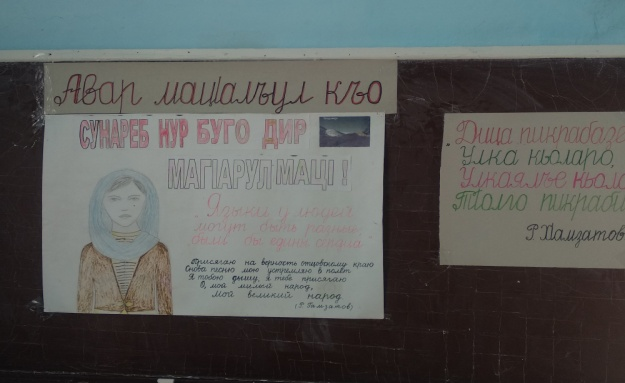 Авар мацӏалъул къо
СУНАРЕБ НУР БУГО ДИР
МАГIАРУЛ МАЦI !
Языки у людей
могут быть разны
были бы едины сердца
Присягаю на верность отцовскому краю
Снова песню мою устремляю в полёт
Я тобою дышу, я тебе присягаю
О, мой милый народ,
мой великий народ
(Р. Гамзатов)
Дица пикрабазе
Улка кьоларо,
Улкаялъе кьола
Тӏолго пикраби
Р.Хӏамзатов